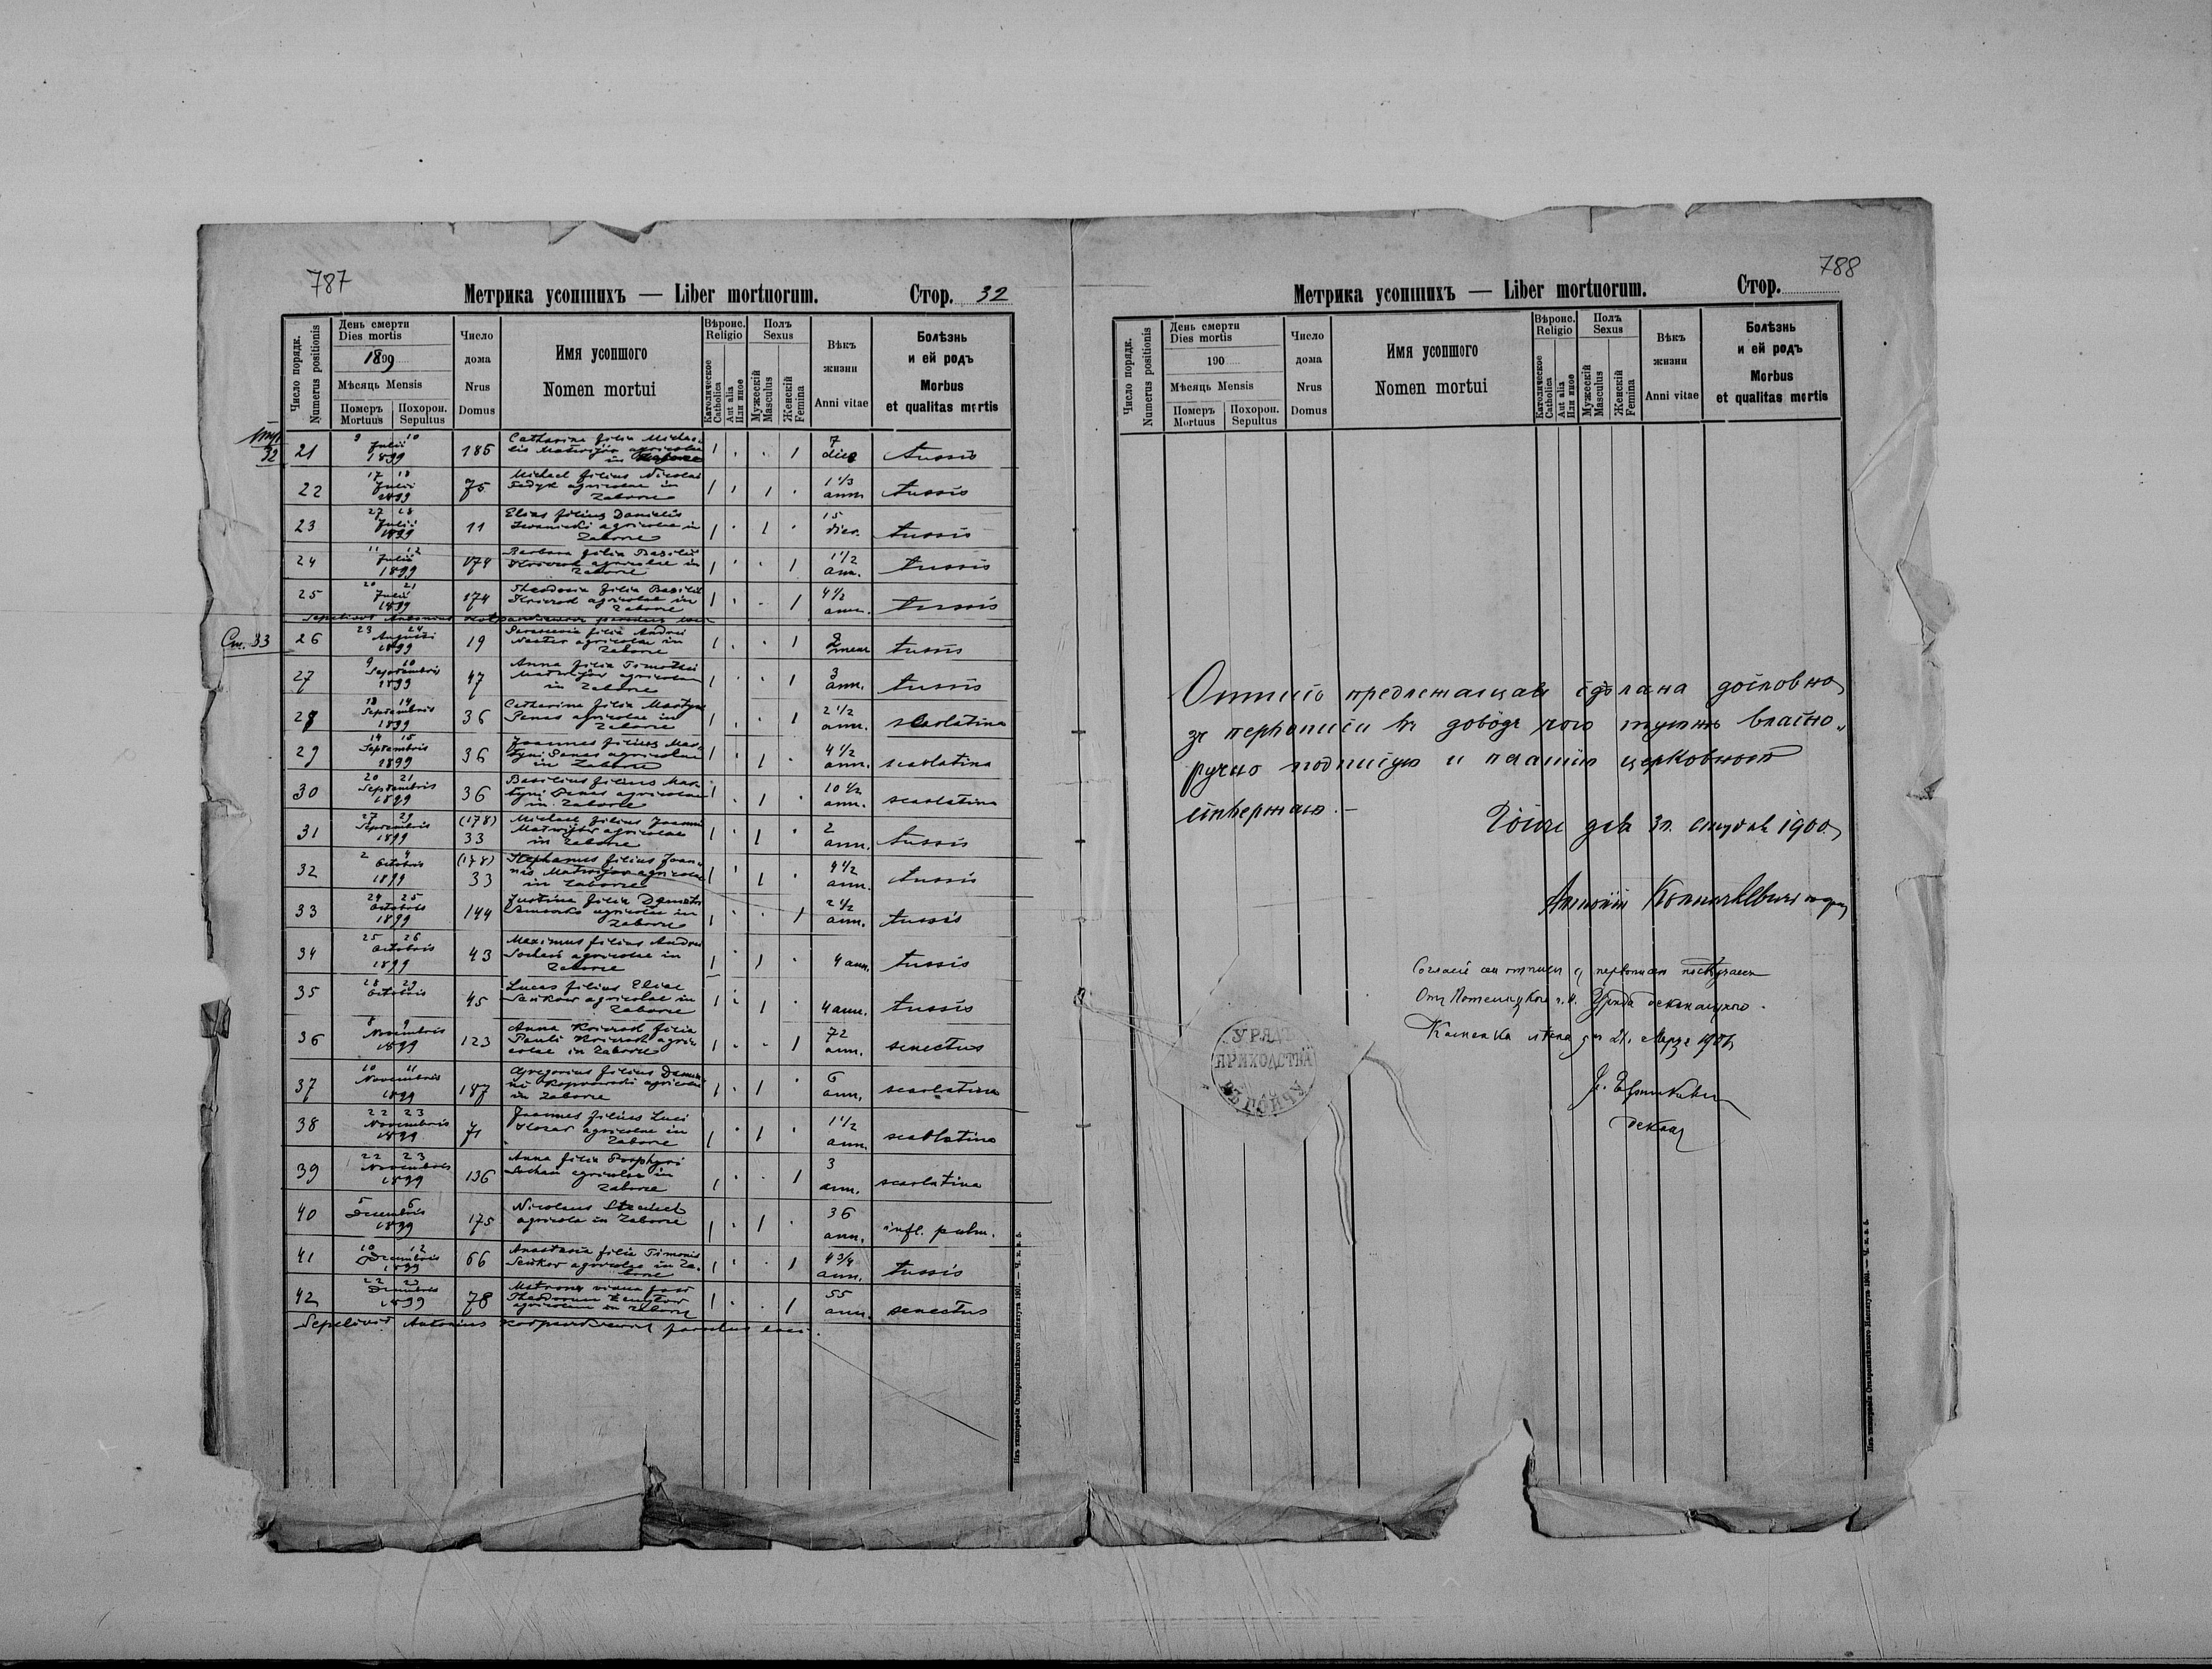 787
Метрика усопшихъ — Liber mortuorum.
Стор. 32
Число порядк.
Numerus positionis
День смерти
Dies mortis
1899
Мѣсяць Mensis
Померъ
Mortuus
Похорон.
Sepultus
Число
дома
Nrus
Domus
Имя усопшого
Nomen mortui
Вѣроис.
Religio
Католическое
Catholica
Aut alia
Или иное
Полъ
Sexus
Мужескій
Masculus
Женскій
Femina
Вѣкъ
жизни
Anni vitae
Болѣзнь
и ей родъ
Morbus
et qualitas mortis
32
21 9 10 Julii 1899 185 Catharina filia Michae-
lis Matwijów agricolae
in Zaborze 1 . . 1 7 dies tussis
22 17 18 Julii 1899 75 Michael filius Nicolai
Fedyk agricolae in
Zaborze 1 . 1 . 1 1/3 ann. tussis
23 27 28 Julii 1899 11 Elias filius Danielis
Iwanicki agricolae in
Zaborze 1 . 1 . 15 dies. tussis
24 11 12 Julii 1899 174 Barbara filia Basilii
agricolae in
Zaborze 1 . . 1 1 1/2 ann. tussis
25 20 21 Julii 1899 174 Theodosia filia Basilii
agricolae in
Zaborze 1 . . 1 4 1/2 ann. tussis
Sepelivit Antonius parochus loci
Ст. 33
26 23 24 Augusti 1899 19 Parascevia filia Andrei
Nester agricolae in
Zaborze 1 . . 1 2 mens. tussis
27 9 10 Septembris 1899 47 Anna filia Timothei
Matwijów agricolae
in Zaborze 1 . . 1 3 ann. tussis
28 13 14 Septembris 1899 36 Catharina filia Martyni
Panas agricolae in
Zaborze 1 . . 1 2 1/2 ann. scarlatina
29 14 15 Septembris 1899 36 Joannes filius Mar-
tyni Panas agricolae
in Zaborze 1 . 1 . 4 1/2 ann. scarlatina
30 20 21 Septembris 1899 36 Basilius filius Mar-
tyni Panas agricolae
in Zaborze 1 . 1 . 10 1/2 ann. scarlatina
31 27 29 Septembris 1899 (178) 33 Michael filius Joannis
Matwijów agricolae
in Zaborze 1 . 1 . 2 ann. tussis
32 2 4 Octobris 1899 (178) 33 Stephanus filius Joan-
nis Matwijów agricolae
in Zaborze 1 . 1 . 4 1/2 ann. tussis
33 24 25 Octobris 1899 144 Justina filia Demetri
agricolae in
Zaborze 1 . . 1 2 1/2 ann. tussis
34 25 26 Octobris 1899 43 Maximus filius Andrei
Sochań agricolae in
Zaborze 1 . 1 . 4 ann. tussis
35 28 29 Octobris 45 Lucas filius Eliae
Seńkow agricolae in
Zaborze 1 . 1 . 4 ann. tussis
36 8 9 Novembris 1899 123 Anna filia
Pauli agri-
colae in Zaborze 1 . . 1 72 ann. senectus
37 10 11 Novembris 1899 187 Gregorius filius
agricolae
in Zaborze 1 . 1 . 6 ann. scarlatina
38 22 23 Novembris 1899 71 Joannes filius Luci
agricolae in
Zaborze 1 . 1 . 1 1/2 ann. scarlatina
39 22 23 Novembris 1899 136 Anna filia Porphyri
Sochań agricolae in
Zaborze 1 . . 1 3 ann. scarlatina
40 5 6 Decembris 1899 175 Nicolaus
agricola in Zaborze 1 . 1 . 36 ann. infl. pulm.
41 10 12 Decembris 1899 66 Anastasia filia Timonis
Seńkow agricolae in Za-
borze 1 . . 1 4 3/4 ann. tussis
42 22 23 Decembris 1899 78 Matrona vidua post
Theodorum
agricolam in Zaborze 1 . . 1 55 ann. senectus
Sepelivit Antonius parochus loci.
Изъ типографіи Ставропигійского Института 1901. — Ч. п. в. 5.
788
Метрика усопшихъ — Liber mortuorum.
Стор.
Число порядк.
Numerus positionis
День смерти
Dies mortis
190
Мѣсяць Mensis
Померъ
Mortuus
Похорон.
Sepultus
Число
дома
Nrus
Domus
Имя усопшого
Nomen mortui
Вѣроис.
Religio
Католическое
Catholica
Aut alia
Или иное
Полъ
Sexus
Мужескій
Masculus
Женскій
Femina
Вѣкъ
жизни
Anni vitae
Болѣзнь
и ей родъ
Morbus
et qualitas mortis
Отпись предлежащая сдѣлана дословно
зъ первописи въ доводъ чого тутже власно-
ручно подписую и печатію церковною
ствержаю. —
дня 31. 1900
Антоній
УРЯДЪ
ПРИХОДСТВА
ВЪ ГОЙЧУ
Согласіе сеи отписи съ первописею
Отъ Уряда деканального.
Каменка дня 21. Марта
декан
Изъ типографіи Ставропигійского Института 1901. — Ч. п. в. 5.